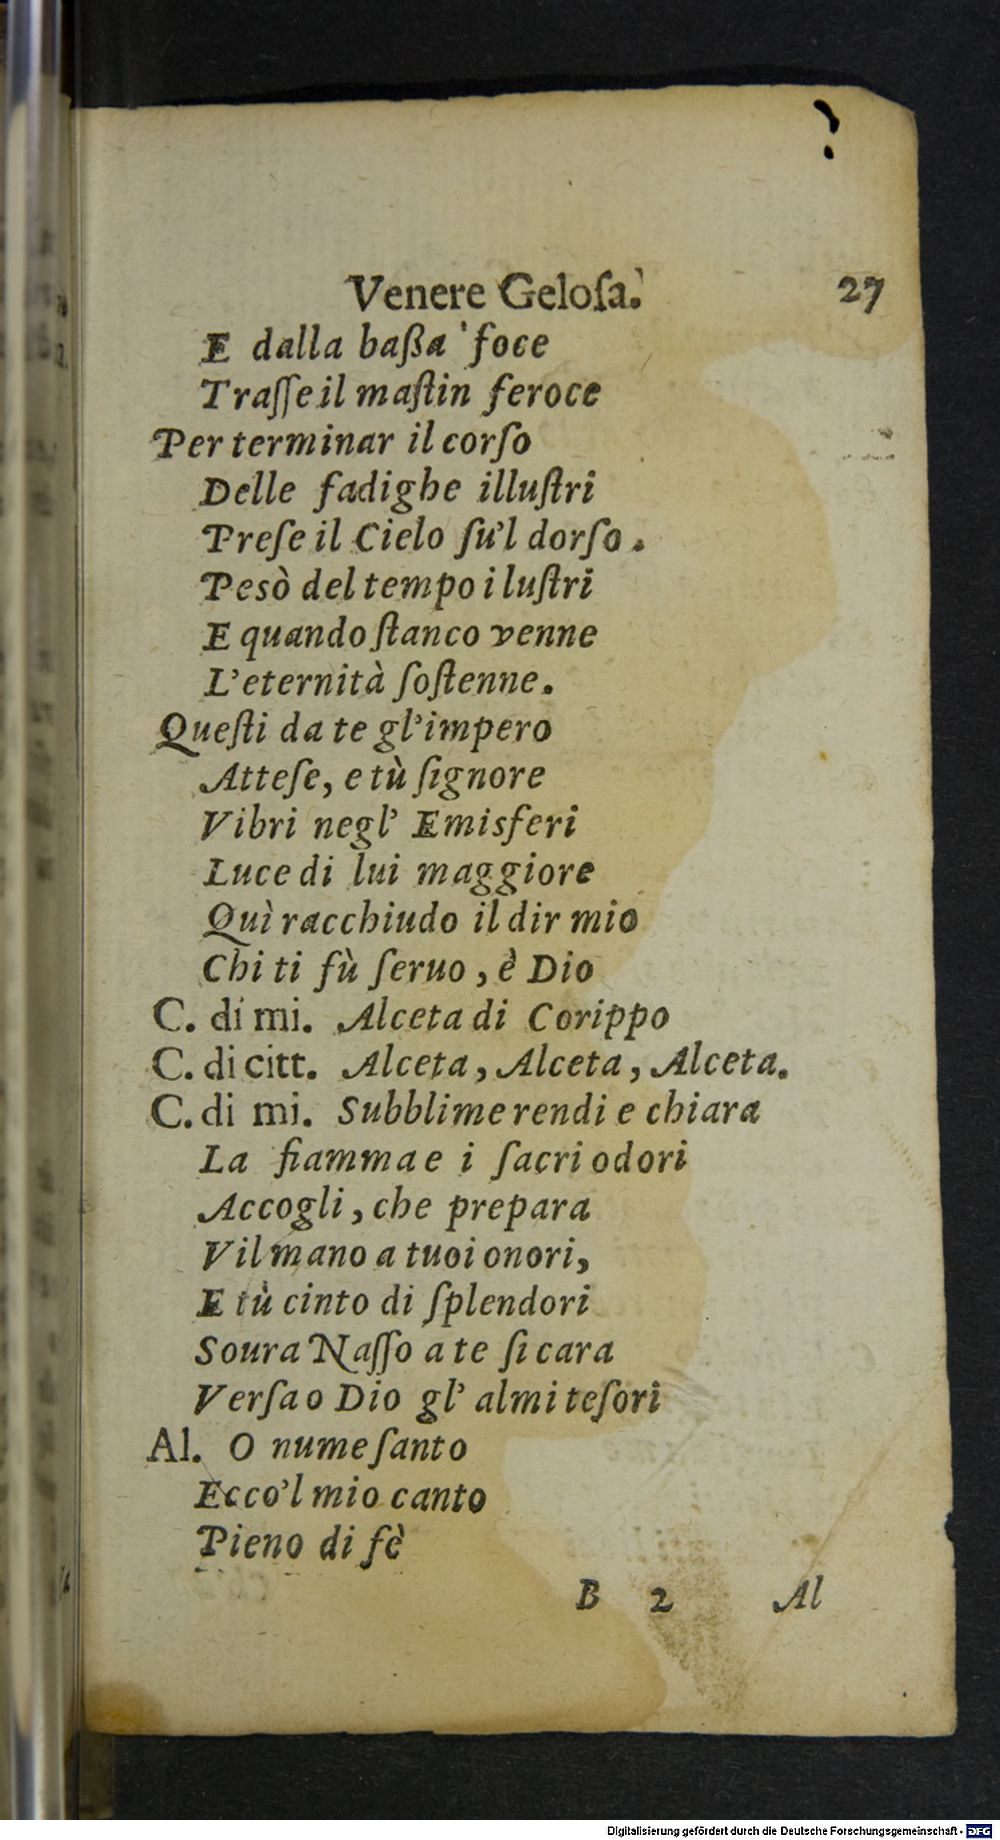 Venere Geloſa. 27
E dalla baßa foce
Traſſe il maſtin feroce
Per terminar il corſo
Delle fadighe illuſtri
Preſe il Cielo ſu'l dorſo.
Pesò del tempo i luſtri
E quando ſtanco venne
L'eternità ſoſtenne.
Queſti da te gl'impero
Atteſe, e tù ſignore
Vibri negl' Emisferi
Luce di lui maggiore
Quì racchiudo il dir mio
Chi ti fù ſeruo, è Dio
C. di mi. Alceta di Corippo
C. di citt. Alceta, Alceta, Alceta.
C. di mi. Subblime rendi e chiara
La fiamma e i ſacri odori
Accogli, che prepara
Vil mano a tuoi onori,
E tù cinto di ſplendori
Soura Naſſo a te ſi cara
Verſa o Dio gl' almi teſori
Al. O nume ſanto
Ecco'l mio canto
Pieno di fè
B 2 Al
Digitalisierung gefördert durch die Deutsche Forschungsgemeinschaft - DFG